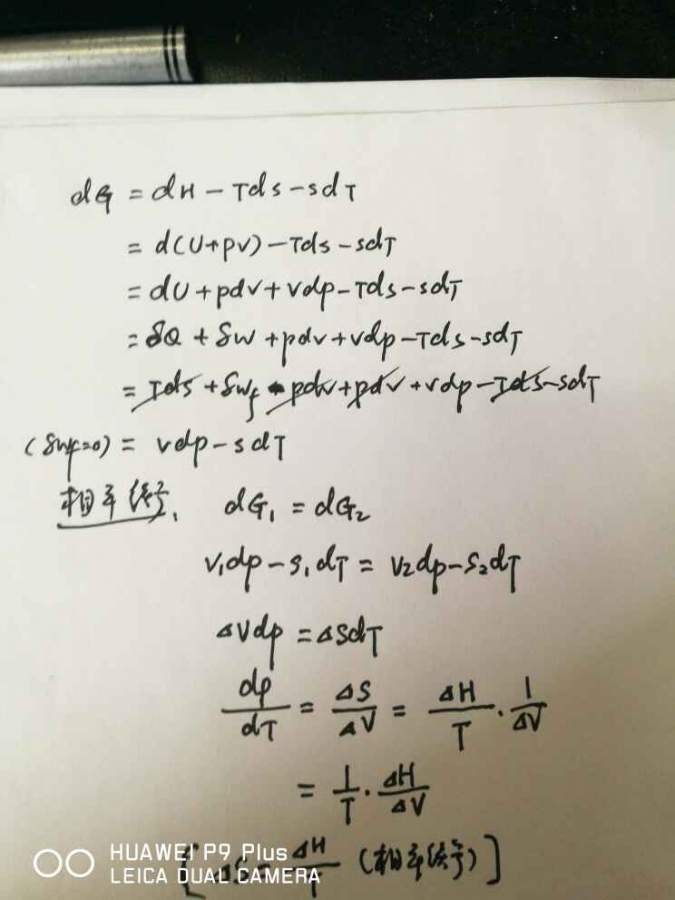 dG = dH - Tds - sdT
= d(U+pv) - Tds - sdT
= dU + pdv + vdp - Tds - sdT
= δQ + δW + pdv + vdp - Tds - sdT
= Tds + δWf - pdv + pdv + vdp - Tds - sdT
(δWf=0) = vdp - sdT
相平 dG₁ = dG₂
V₁dp - S₁dT = V₂dp - S₂dT
ΔVdp = ΔSdT
dp/dT = ΔS/ΔV = ΔH/T · 1/ΔV
= 1/T · ΔH/ΔV
[ ΔH (相平) ]
HUAWEI P9 Plus
LEICA DUAL CAMERA